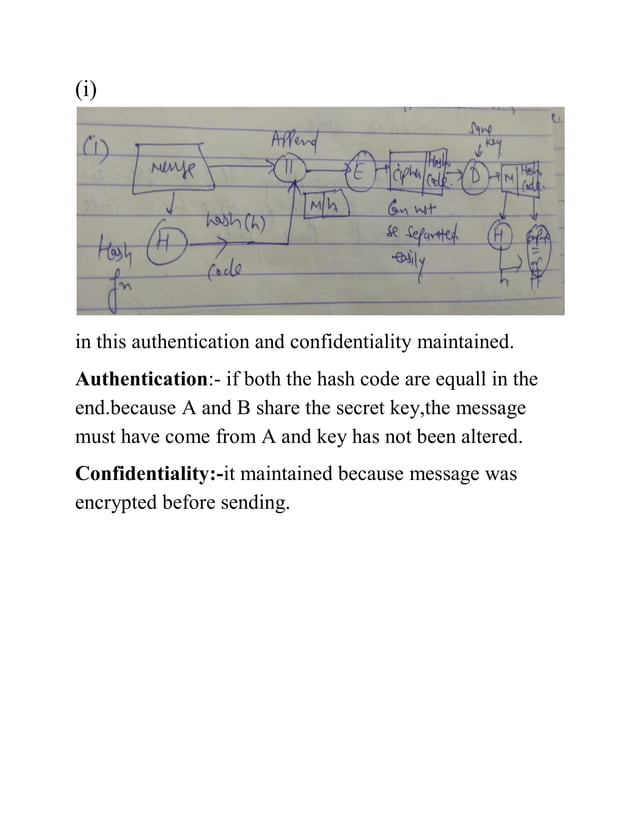 (i)
(i)
Append
Same
key
||
E
Cipher
Hash
Code.
D
M
Hash
Code.
M/h
Can not
be separated
easily
hash (h)
code
H
Hash
fn
H
h
in this authentication and confidentiality maintained.
Authentication:- if both the hash code are equall in the
end.because A and B share the secret key,the message
must have come from A and key has not been altered.
Confidentiality:-it maintained because message was
encrypted before sending.